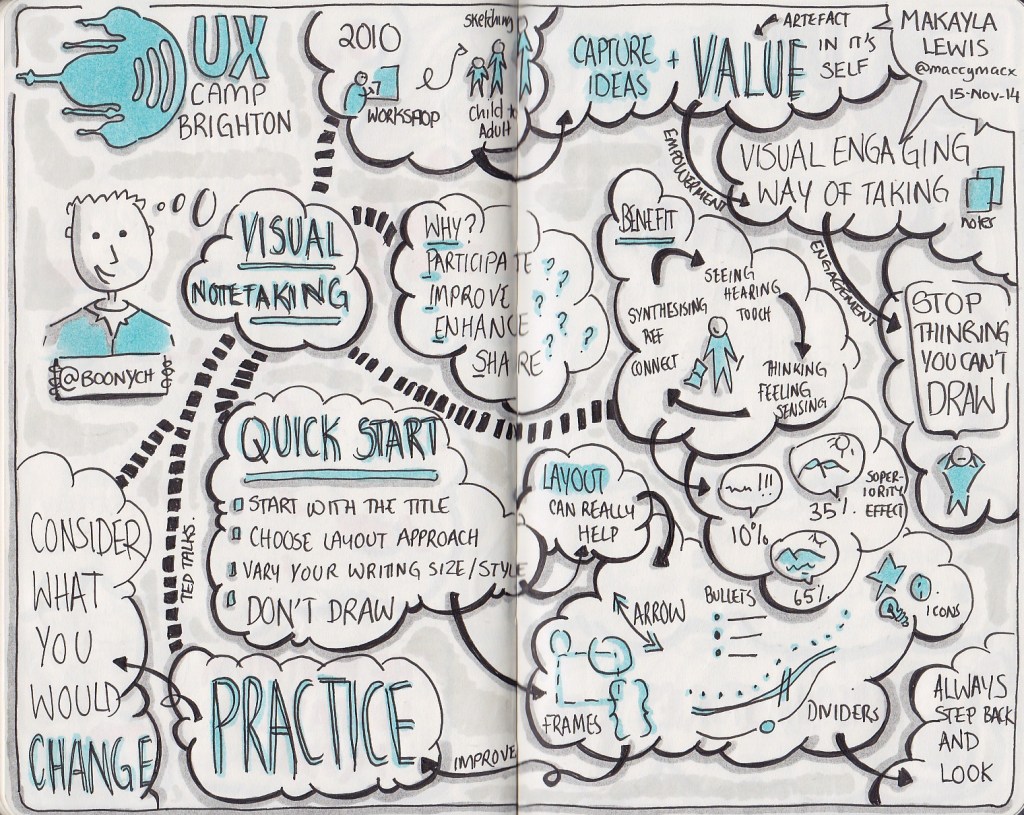 UX
CAMP
BRIGHTON
2010
WORKSHOP
sketching
child to
Adult
CAPTURE
IDEAS
+
VALUE
ARTEFACT
IN IT'S
SELF
MAKAYLA
LEWIS
@maccymacx
15-Nov-14
EMPOWERMENT
VISUAL ENGAGING
WAY OF TAKING
notes
ENGAGEMENT
STOP
THINKING
YOU CAN'T
DRAW
@BOONYCH
VISUAL
NOTETAKING
WHY?
PARTICIPATE
IMPROVE
ENHANCE
SHARE
? ? ? ? ? ?
BENEFIT
SEEING
HEARING
TOUCH
THINKING
FEELING
SENSING
SYNTHESISING
REF
CONNECT
!!!
10%
35%
65%
SUPER-
IORITY
EFFECT
QUICK START
START WITH THE TITLE
CHOOSE LAYOUT APPROACH
VARY YOUR WRITING SIZE/STYLE
DON'T DRAW
LAYOUT
CAN REALLY
HELP
ARROW
BULLETS
ICONS
FRAMES
DIVIDERS
ALWAYS
STEP BACK
AND
LOOK
IMPROVE
PRACTICE
TED TALKS
CONSIDER
WHAT
YOU
WOULD
CHANGE